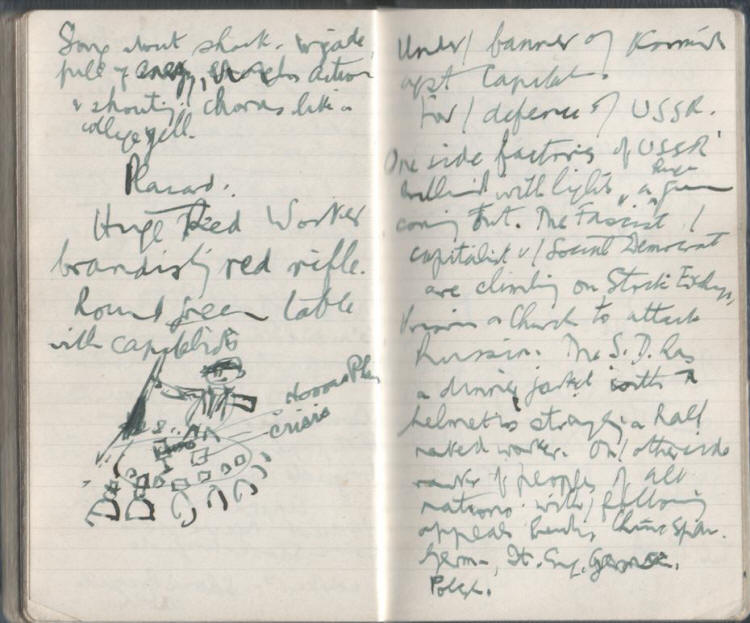 Song about shock-brigade,
full of energy, action
& shouting chorus like a
college yell.
Placard.
Huge Red Worker
brandishing red rifle.
Round green table
with capitalists
crisis
Under / banner of Komint
agst Capital.
For / defence of USSR.
One side factories of USSR
with lights, a huge gun
coming out. The Fascist /
capitalist & / Social Democrat
are climbing on Stock Exchge,
a Church to attack
Russia. The S.D. has
a dinner jacket with a
helmet is strangling a half
naked worker. On / other side
ranks of peoples of all
nations with / following
appeals Chin. Span.
Germ, It. Eng.
Polish.